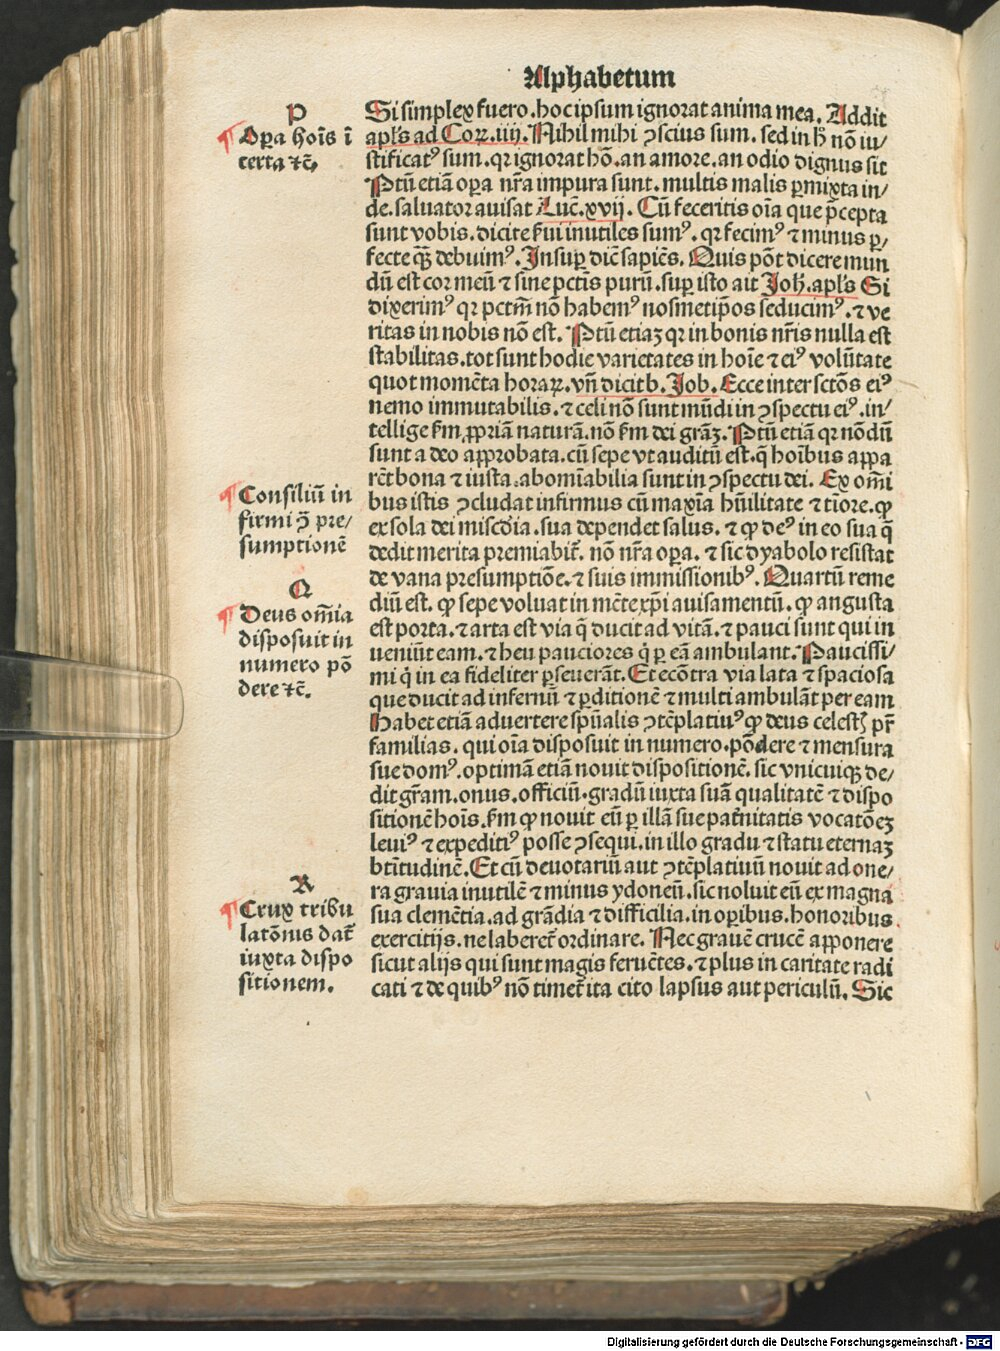 Alphabetum
P
¶ Oꝑa hoīs ī
certa ⁊c̄.
¶ Consiliū in
firmi ꝯ̄ pre/
sumptionē
Q
¶ Deus om̄ia
disposuit in
numero pō
dere ⁊c̄.
R
¶ Crux tribu
latōnis dat̄
iuxta dispo
sitionem.
Si simplex fuero. hoc ipsum ignorat anima mea. Addit
apl's ad Corꝝ. iiij. Nihil mihi ꝯscius sum. sed in h̄ nō iu/
stificatꝰ sum. qꝛ ignorat hō. an amore. an odio dignus sit
Ptū etiā oꝑa nr̄a impura sunt. multis malis ꝑmixta in/
de. saluator auisat Luc̄. xvij. Cū feceritis oīa que p̄cepta
sunt vobis. dicite ẜui inutiles sumꝰ. qꝛ fecimꝰ ⁊ minus ꝑ/
fecte qꝫ debuimꝰ. Insuꝑ dic̄ sapiēs. Quis pōt dicere mun
dū est cor meū ⁊ sine pctīs purū. suꝑ isto ait Joh̄. apl's Si
dixerimꝰ qꝛ pctm̄ nō habemꝰ nosmetip̄os seducimꝰ. ⁊ ve
ritas in nobis nō est. Ptū etiaꝫ qꝛ in bonis nr̄is nulla est
stabilitas. tot sunt hodie varietates in hoīe ⁊ eiꝰ volūtate
quot momēta horaꝝ. vn̄ dicit b. Job. Ecce inter sctōs eiꝰ
nemo immutabilis. ⁊ celi nō sunt mūdi in ꝯspectu eiꝰ. in/
tellige ẜm ꝓpriā naturā. nō ẜm dei grāꝫ. Ptū etiā qꝛ nōdū
sunt a deo approbata. cū sepe vt auditū est. q̄ hoībus appa
rēt bona ⁊ iusta. abomīabilia sunt in ꝯspectu dei. Ex om̄i
bus istis ꝯcludat infirmus cū maxīa hūilitate ⁊ tīore. ꝙ
ex sola dei misc̄dia. sua dependet salus. ⁊ ꝙ deꝰ in eo sua q̄
dedit merita premiabit̄. nō nr̄a oꝑa. ⁊ sic dyabolo resistat
de vana presumptiōe. ⁊ suis immissionibꝰ. Quartū reme
diū est. ꝙ sepe voluat in mēte xp̄i auisamentū. ꝙ angusta
est porta. ⁊ arta est via q̄ ducit ad vitā. ⁊ pauci sunt qui in
ueniūt eam. ⁊ heu pauciores q̇ ꝑ eā ambulant. Paucissi/
mi q̇ in ea fideliter ꝑseuerāt. Et ecōtra via lata ⁊ spaciosa
que ducit ad infernū ⁊ ꝑditionē ⁊ multi ambulāt per eam
Habet etiā aduertere spūalis ꝯtēplatiuꝰ ꝙ deus celest̄ pr̄
familias. qui oīa disposuit in numero. pōdere ⁊ mensura
sue domꝰ. optimā etiā nouit dispositionē. sic vnicuiqꝫ de/
dit gr̄am. onus. officiū. gradū iuxta suā qualitatē ⁊ dispo
sitionē hoīs. ẜm ꝙ nouit eū ꝑ illā sue pat̄nitatis vocatōeꝫ
leuiꝰ ⁊ expeditiꝰ posse ꝯsequi. in illo gradu ⁊ statu eternaꝫ
bt̄itudinē. Et cū deuotariū aut ꝯtēplatiuū nouit ad one/
ra grauia inutilē ⁊ minus ydoneū. sic noluit eū ex magna
sua clemētia. ad grādia ⁊ difficilia. in oꝑibus. honoribus
exercitijs. ne laberet̄ ordinare. Nec grauē crucē apponere
sicut alijs qui sunt magis feruētes. ⁊ plus in caritate radi
cati ⁊ de quibꝰ nō timet̄ ita cito lapsus aut periculū. Sic
Digitalisierung gefördert durch die Deutsche Forschungsgemeinschaft - DFG